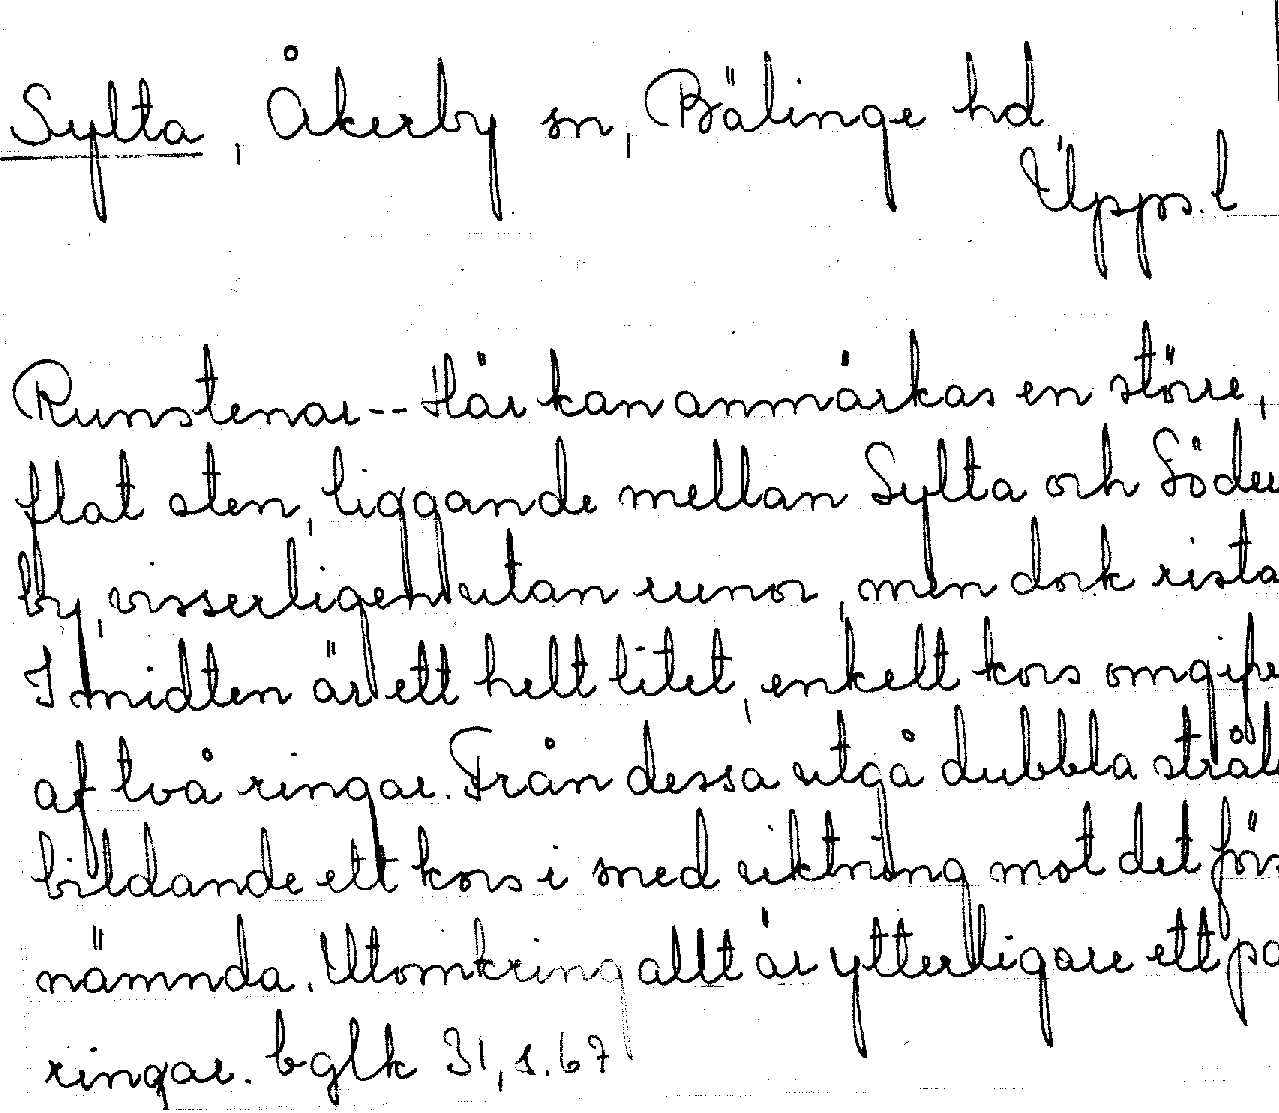 Sylta, Åkerby sn, Bälinge hd,
Upps. l
Runstenar -- Här kan anmärkas en större,
flat sten, liggande mellan Sylta och Söder
by, visserligen utan runor, men dock rista
I midten är ett helt litet, enkelt kors omgife
af två ringar. Från dessa utgå dubbla strål
bildande ett kors i sned riktning mot det förs
nämnda. Utomkring allt är ytterligare ett pa
ringar. bglk 31, s. 67